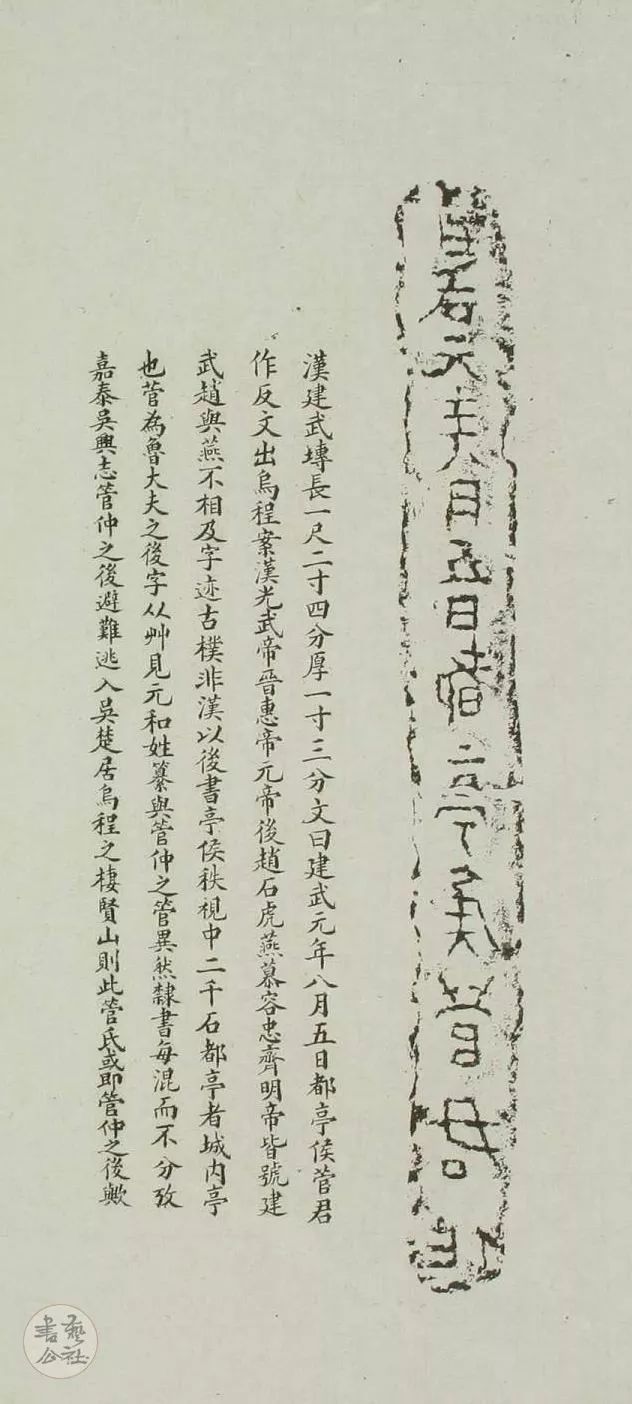 漢建武塼長一尺二寸四分厚一寸三分文曰建武元年八月五日都亭侯菅君
作反文出烏程案漢光武帝晉惠帝元帝後趙石虎燕慕容忠齊明帝皆號建
武趙與燕不相及字迹古樸非漢以後書亭侯秩視中二千石都亭者城内亭
也菅為魯大夫之後字从艸見元和姓纂與管仲之管異然隸書每混而不分攷
嘉泰吳興志管仲之後避難逃入吳楚居烏程之棲賢山則此管氏或即管仲之後歟
書藝公社